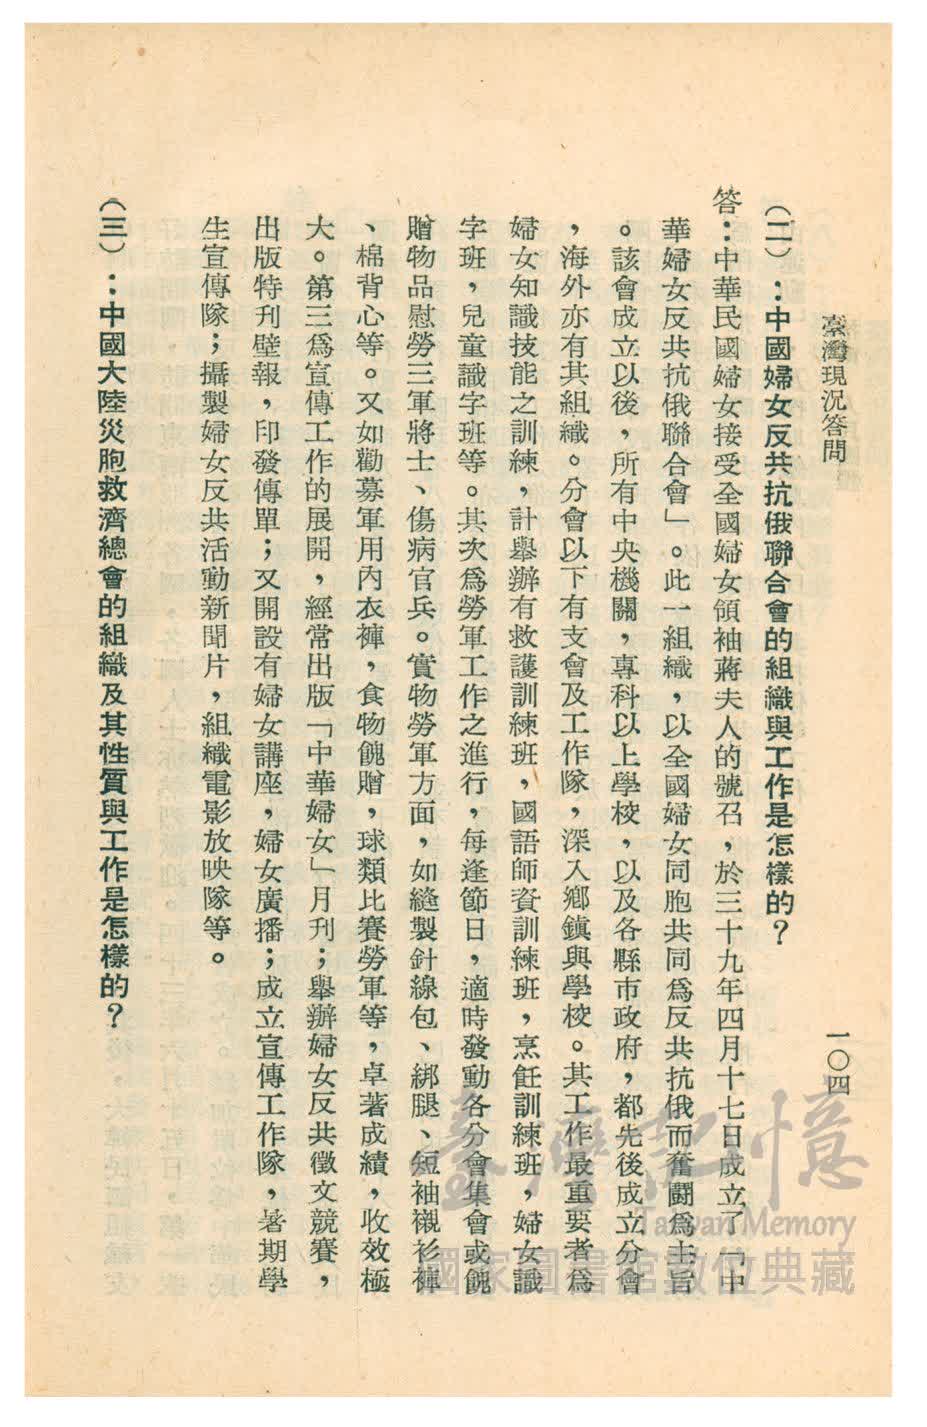 臺灣現況答問
一〇四
（二）：中國婦女反共抗俄聯合會的組織與工作是怎樣的？
答：中華民國婦女接受全國婦女領袖蔣夫人的號召，於三十九年四月十七日成立了「中
華婦女反共抗俄聯合會」。此一組織，以全國婦女同胞共同為反共抗俄而奮鬪為主旨
。該會成立以後，所有中央機關，專科以上學校，以及各縣市政府，都先後成立分會
，海外亦有其組織。分會以下有支會及工作隊，深入鄉鎮與學校。其工作最重要者為
婦女知識技能之訓練，計舉辦有救護訓練班，國語師資訓練班，烹飪訓練班，婦女識
字班，兒童識字班等。其次為勞軍工作之進行，每逢節日，適時發動各分會集會或餽
贈物品慰勞三軍將士、傷病官兵。實物勞軍方面，如縫製針線包、綁腿、短袖襯衫褲
、棉背心等。又如勸募軍用內衣褲，食物餽贈，球類比賽勞軍等，卓著成績，收效極
大。第三為宣傳工作的展開，經常出版「中華婦女」月刊；舉辦婦女反共徵文競賽，
出版特刊壁報，印發傳單；又開設有婦女講座，婦女廣播；成立宣傳工作隊，暑期學
生宣傳隊；攝製婦女反共活動新聞片，組織電影放映隊等。
（三）：中國大陸災胞救濟總會的組織及其性質與工作是怎樣的？
臺灣記憶
Taiwan Memory
國家圖書館數位典藏